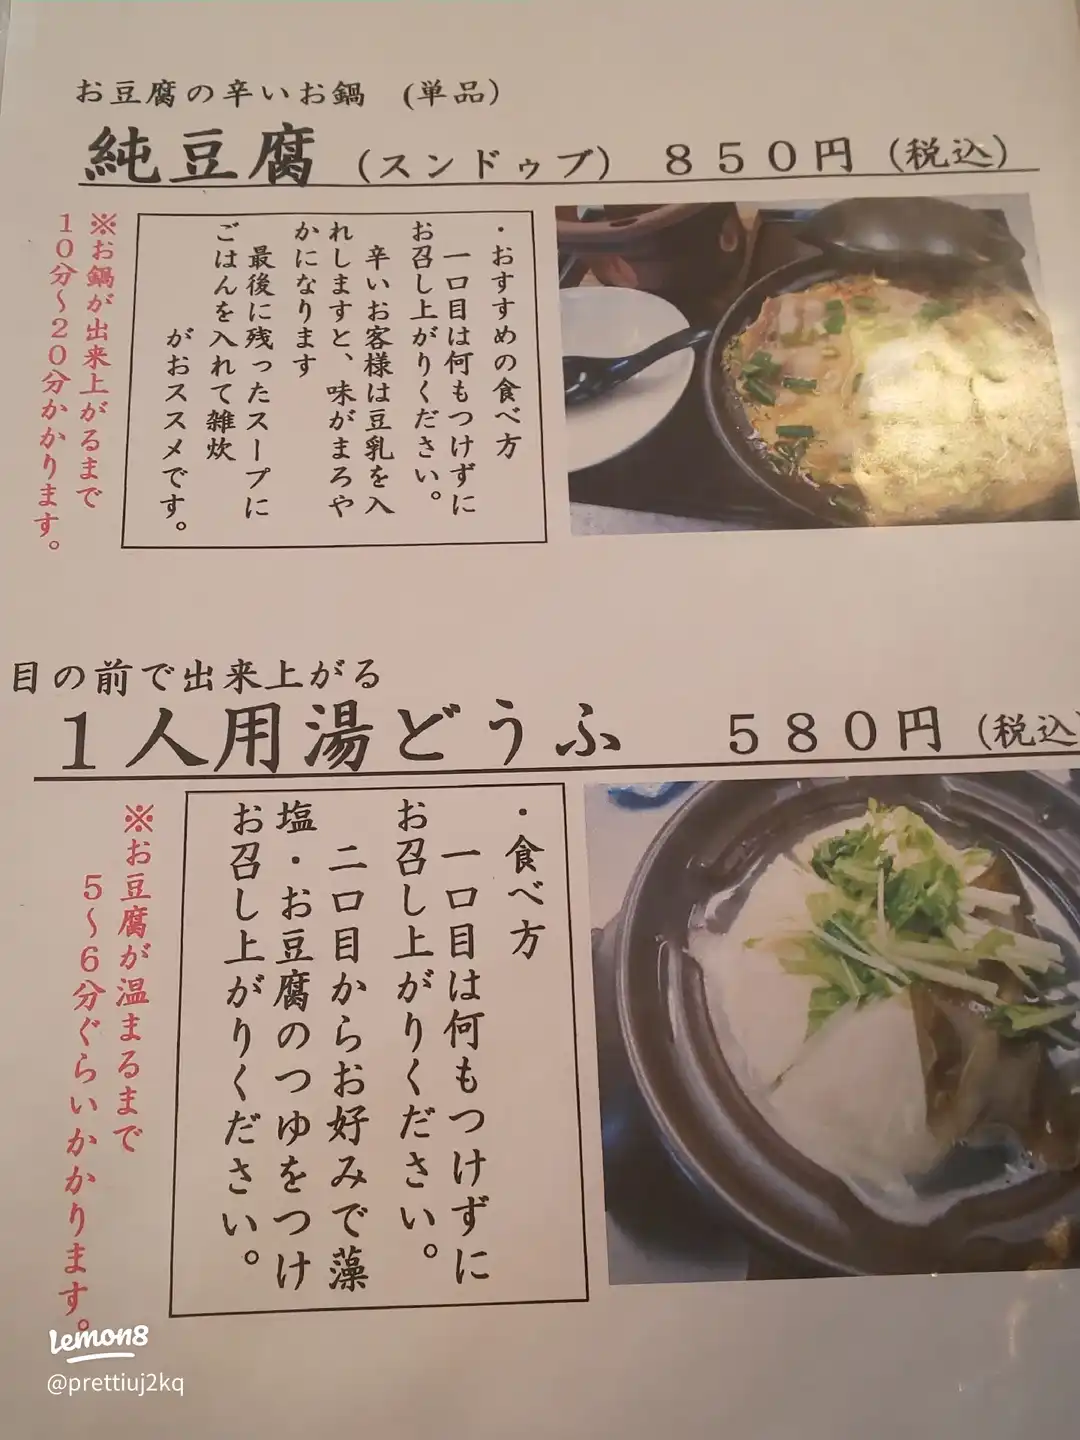 お豆腐の辛いお鍋 (単品)
純豆腐 (スンドゥブ) 850円 (税込)
・おすすめの食べ方
一口目は何もつけずに
お召し上がりください。
辛いお客様は豆乳を入
れしますと、味がまろや
かになります
最後に残ったスープに
ごはんを入れて雑炊
がおススメです。
※お鍋が出来上がるまで
10分～20分かかります。
目の前で出来上がる
1人用湯どうふ 580円 (税込
・食べ方
一口目は何もつけずに
お召し上がりください。
二口目からお好みで藻
塩・お豆腐のつゆをつけ
お召し上がりください。
※お豆腐が温まるまで
5～6分ぐらいかかります。
lemon8
@prettiuj2kq